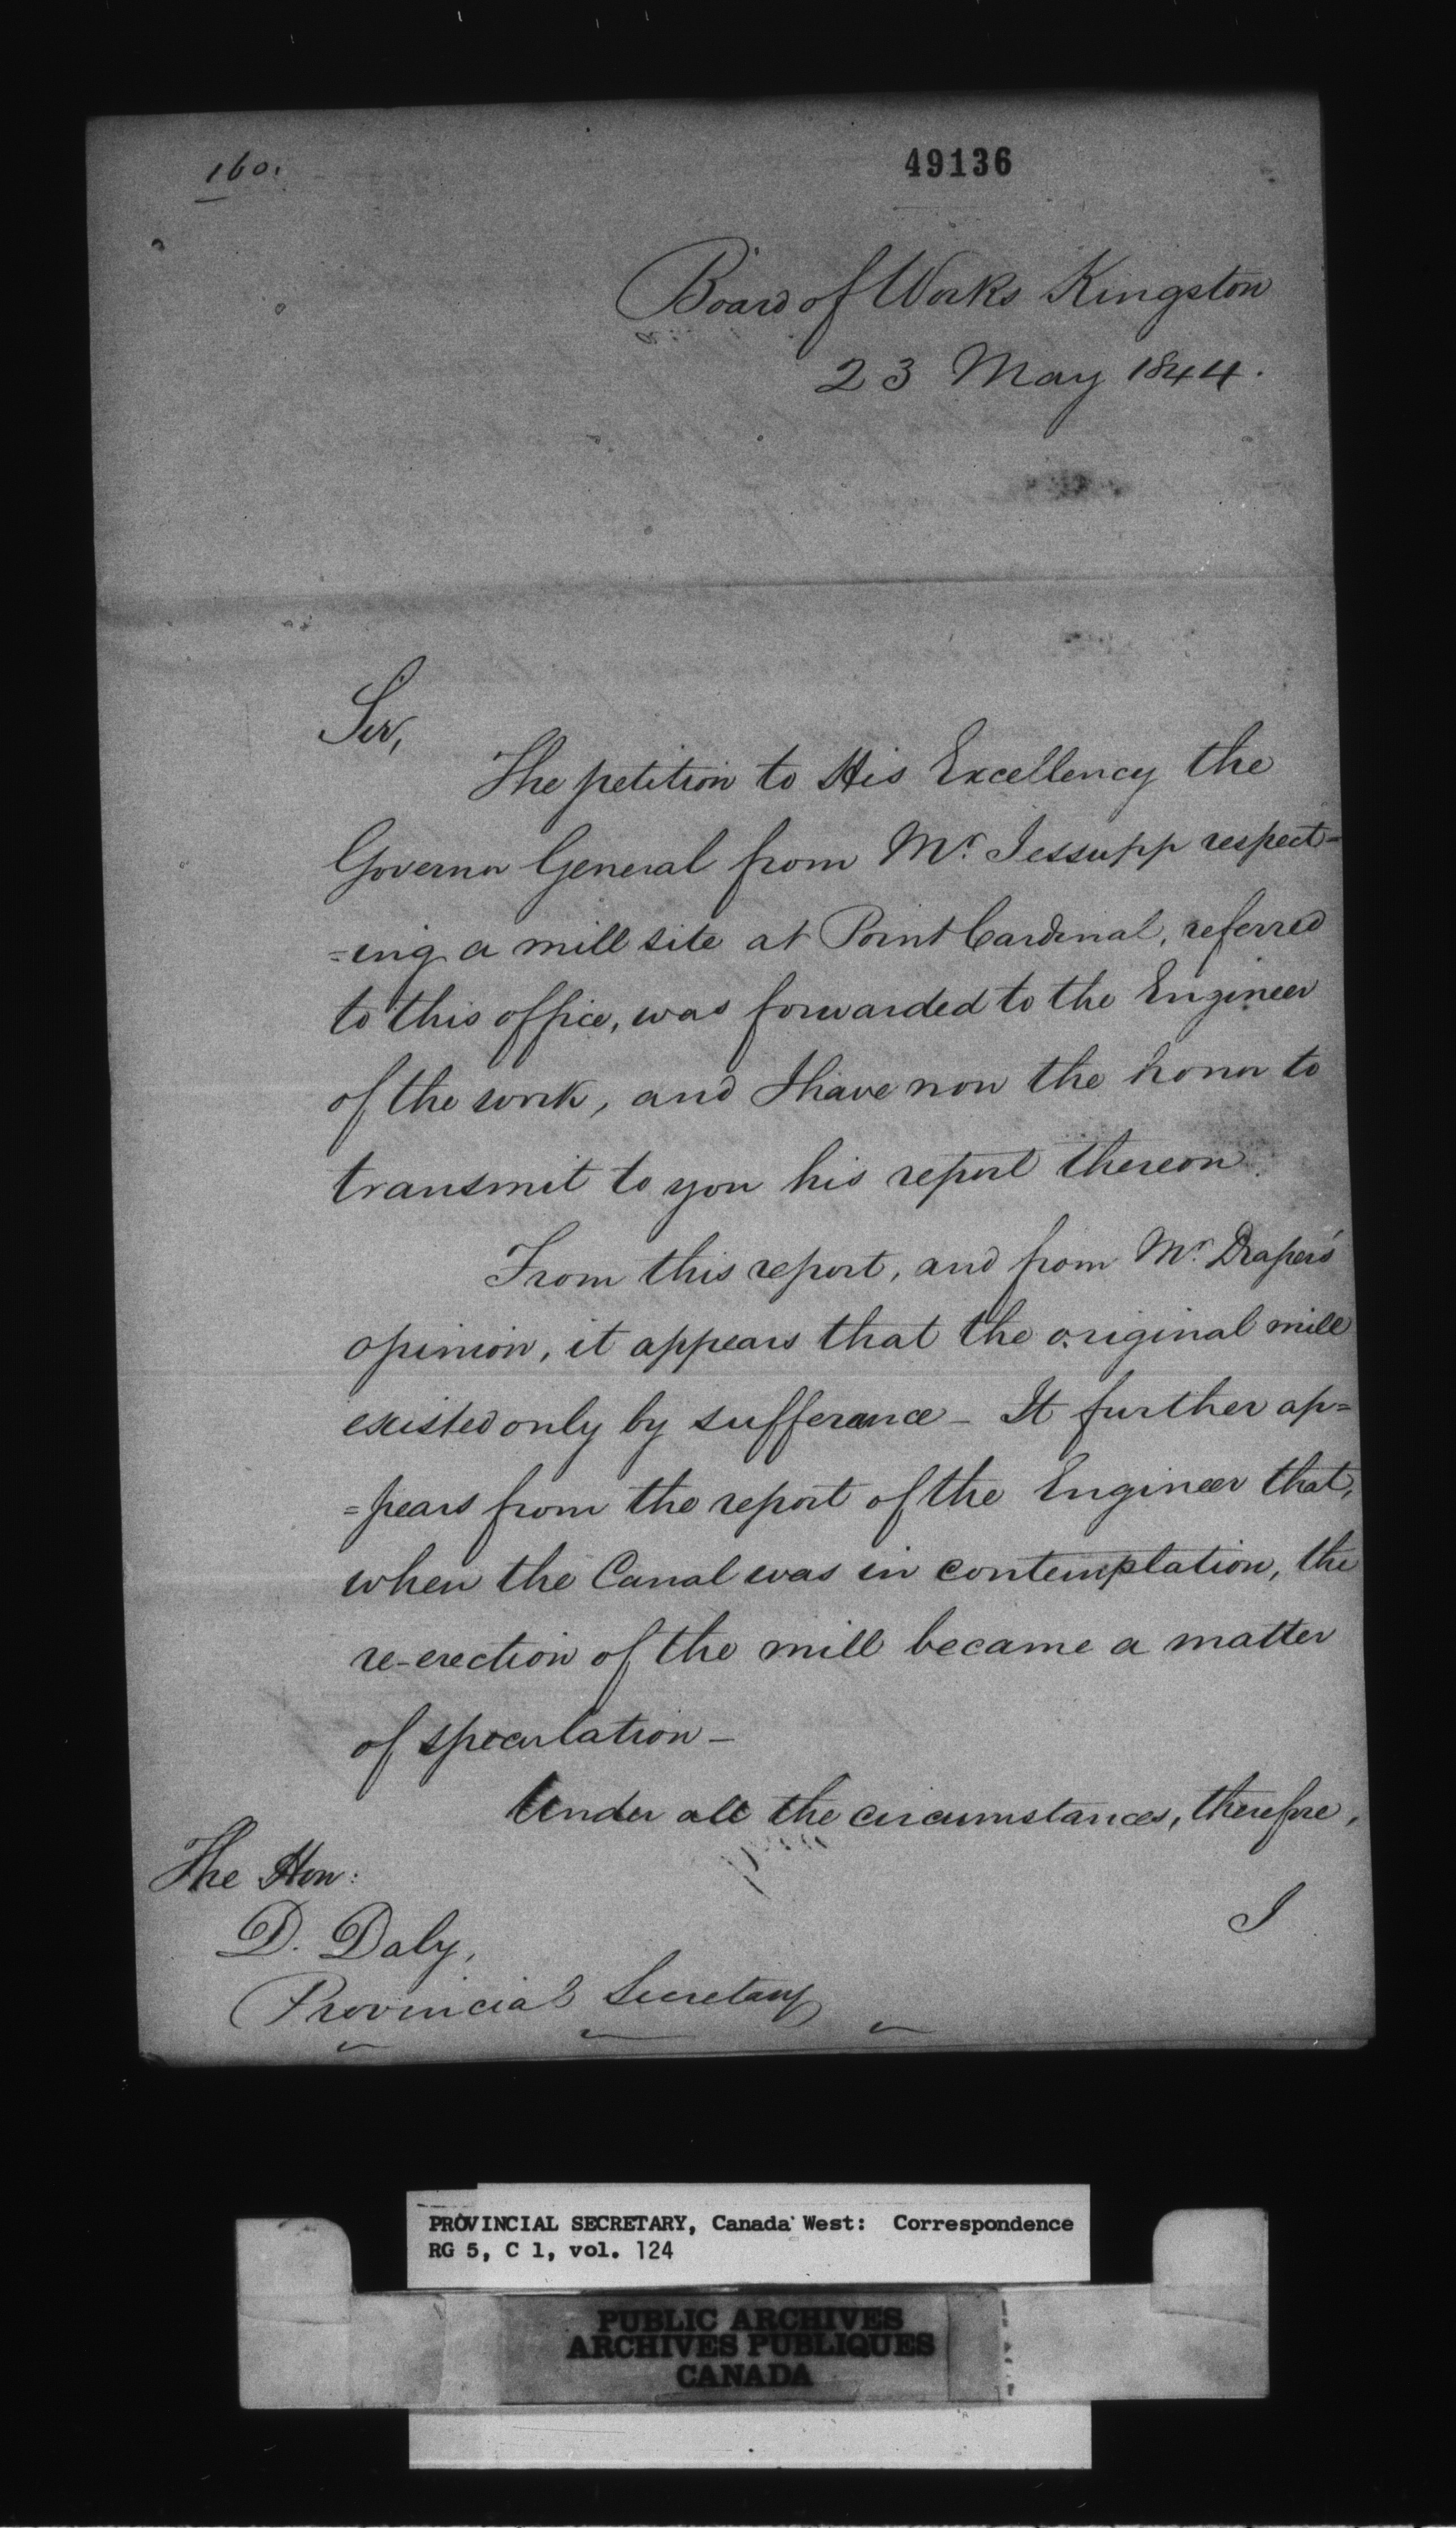 160.
49136
Board of Works Kingston
23 May 1844.
Sir,
The petition to His Excellency the
Governor General from Mr. Jessupp respect-
=ing a mill site at Point Cardinal, referred
to this office, was forwarded to the Engineer
of the work, and I have now the honor to
transmit to you his report thereon.
From this report, and from Mr. Draper's
opinion, it appears that the original mill
existed only by sufferance - It further ap=
=pears from the report of the Engineer that,
when the Canal was in contemplation, the
re-erection of the mill became a matter
of speculation -
Under all the circumstances, therefore,
I
The Hon:
D. Daly,
Provincial Secretary
PROVINCIAL SECRETARY, Canada West: Correspondence
RG 5, C 1, vol. 124
PUBLIC ARCHIVES
ARCHIVES PUBLIQUES
CANADA